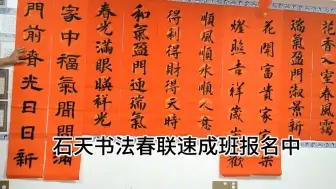 瑞氣盈門淑景新
花開富貴家家樂
燈照吉祥歲歲歡
順風順水順人意
得利得財得天時
和氣盈門連瑞氣
春光滿眼映祥光
家中福氣間間滿
門前春光日日新
石天书法春联速成班报名中